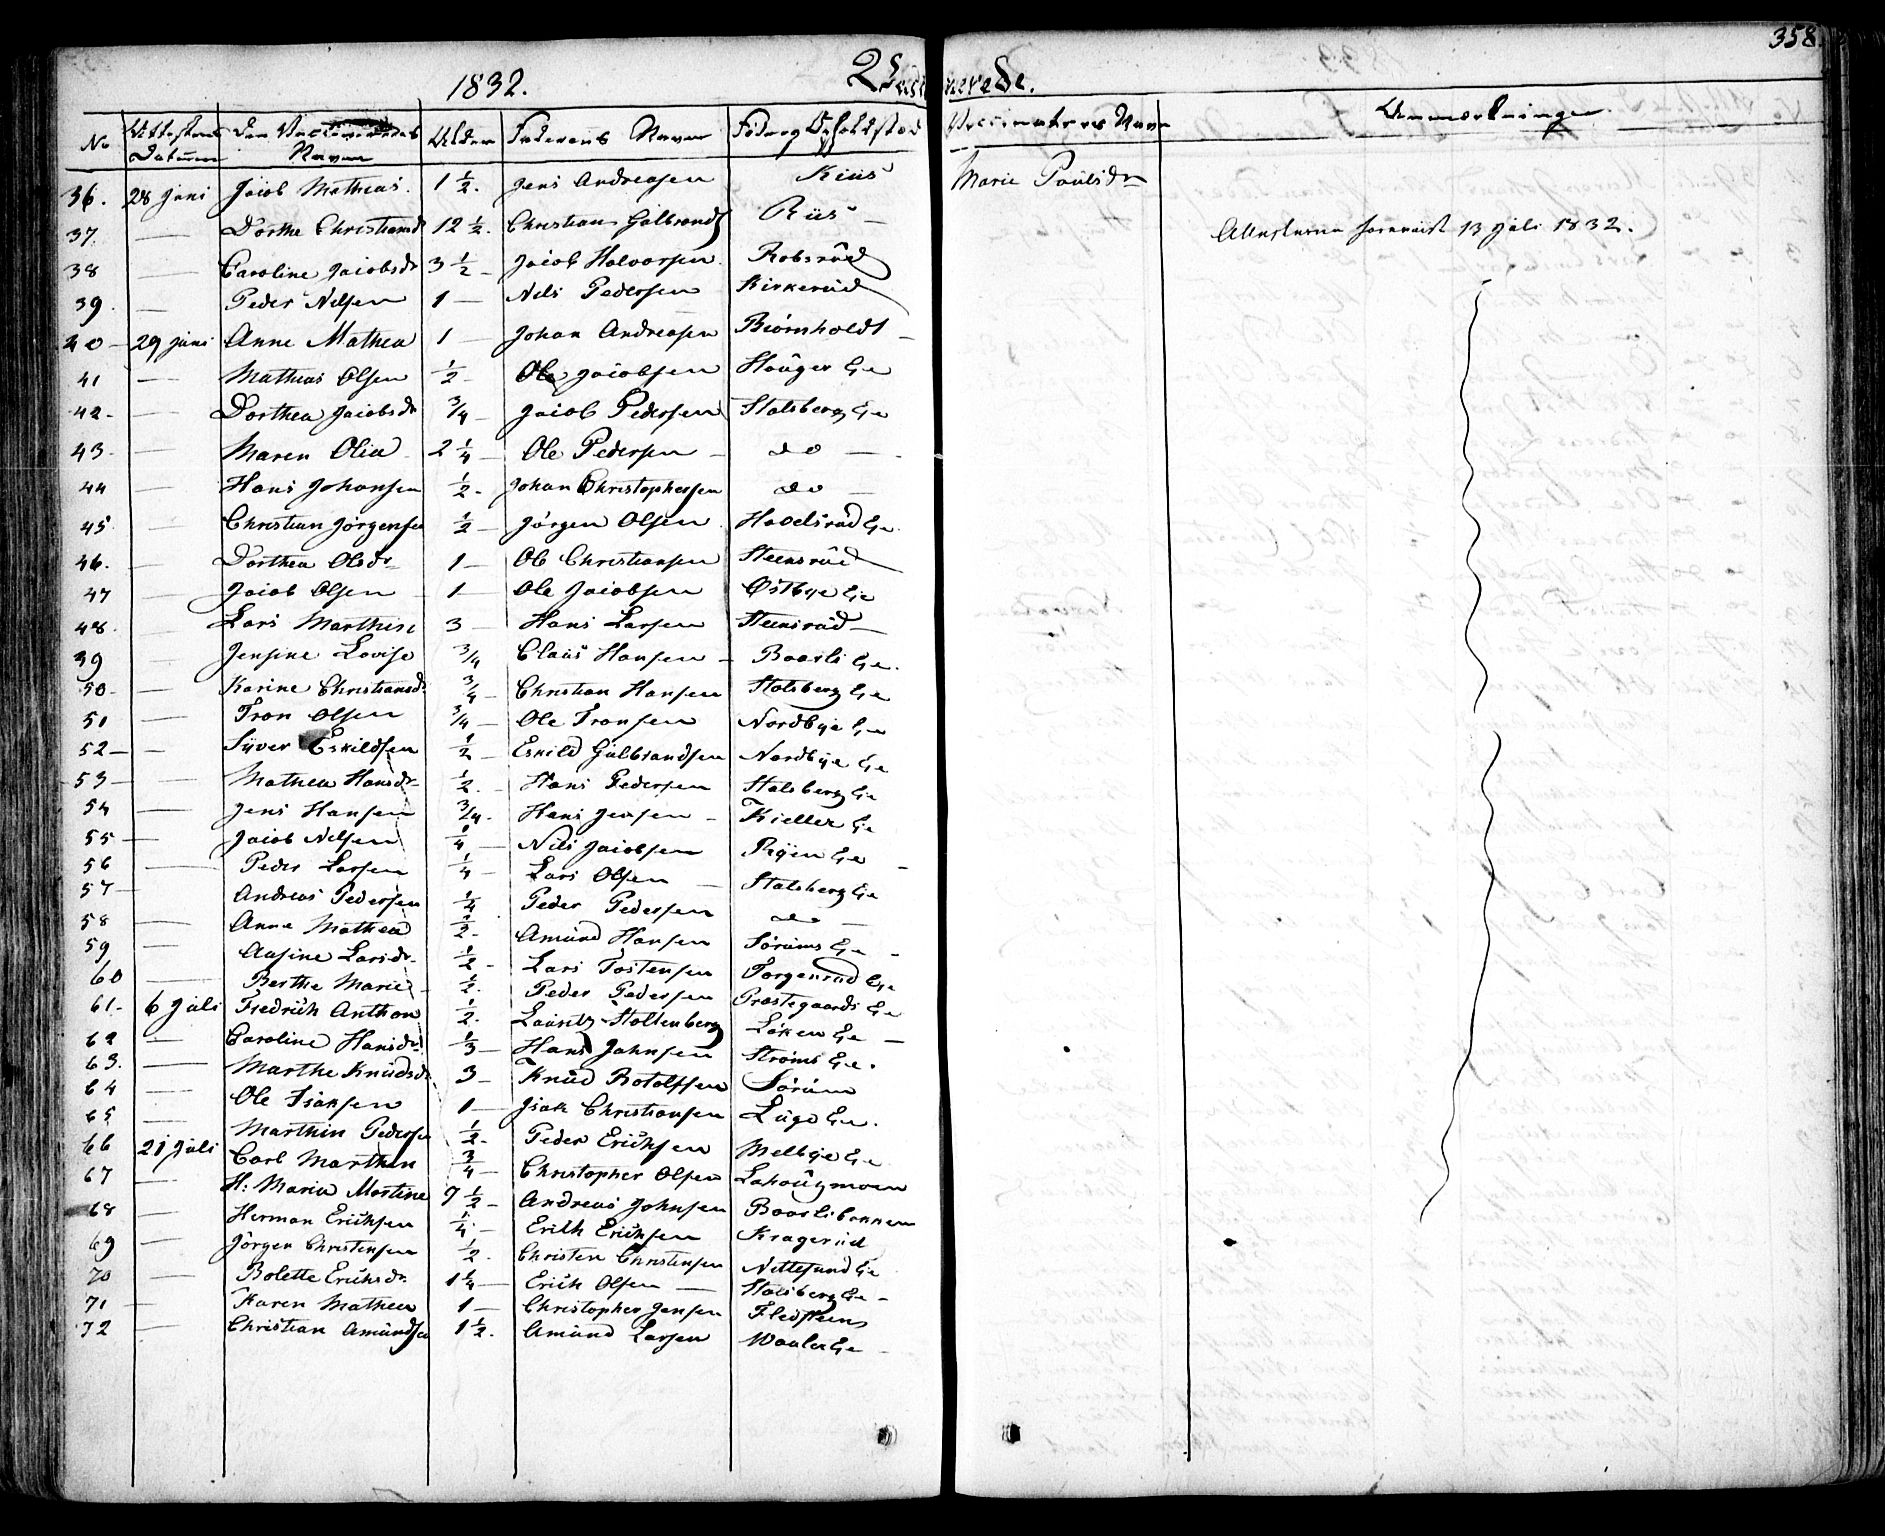 358.
1832. Vaccinerede.
No Attestens Datum Den Vaccineredes Navn Alder Faderens Navn Føde og Opholdsted Vaccinateurs Navn Anmærkninger
36. 28 Juni Jacob Mathias. 1 1/2. Jens Andreasen Riis Marie Poulsdr
37. — Dorthe Christiansdr 12 1/2. Christian Gulbrands Riis — Attesterne fornviist 13 Juli 1832.
38 — Caroline Jacobsdr 3 1/2 — Jacob Halvorsen Robsrud
39. — Peder Nilsen 1 — Nils Pedersen Kirkerud
40 — 29 Juni Anne Mathea 1 — Johan Andreasen Biørnholdt —
41 — Mathias Olsen 1/2 — Ole Jacobsen Hauger Eie
42 — Dorthea Jacobsdr 3/4 — Jacob Pedersen Stalsberg Eie
43 — Maren Olia 2 1/4 — Ole Pedersen — do —
44 — Hans Johansen 1/2 — Johan Christophersen do —
45 — Christian Jørgensen 1/2 — Jørgen Olsen Hvelsrud Eie
46. — Dorthea Olsdr 1 — Ole Christiansen Steensrud
47 — Jacob Olsen 1 — Ole Jacobsen Østbye Eie
48. — Lars Marthin 3 — Hans Larsen Steensrud —
39 — Jensine Lovise 3/4 Claus Hansen — Baarli Eie.
50 — Karine Christiansdr 3/4 — Christian Hansen Stalsberg Eie
51 — Tron Olsen 3/4 — Ole Tronsen Nordbye Eie
52 — Syver Eskildsen 1/2 — Eskild Gulbrandsen Nordbye Eie
53 — Mathea Hansdr 1/2. — Hans Pedersen Stalsberg Eie
54 — Jens Hansen 3/4. Hans Jensen — Kieller Eie
55 — Jacob Nilsen 1/4 — Nils Jacobsen Ryen Eie
56 — Peder Larsen 1/4 — Lars Olsen — Stalsberg Eie
57 — Andreas Pedersen 1/4 Peder Pedersen do —
58 — Anne Mathea 1/2 — Amund Hansen Sørums Eie —
59 — Aasine Larsdr 1/2 — Lars Tostensen Torgersrud Eie
60 — Berthe Marie 1/2. Peder Pedersen Præstegaards Eie
61. 6 Juli Fredrich Anthon 1/2. Lauritz Stoltenberg Løken Eie —
62 — Caroline Hansdr 1/3 — Hans Johnsen Strøms Eie.
63. — Marthe Knudsdr 3 — Knud Botolfsen Sørum
64 — Ole Isaksen 1 — Isak Christiansen Luge Eie.
65 — Marthin Pedersen 1/2. Peder Erichsen Melbye Eie
66 21 Juli Carl Marthin 3/4 — Christopher Olsen Lahaugmoen
67 — H: Maria Martine 7 1/2 — Andreas Johnsen Baarlibakken
68 — Herman Erichsen 1/4. — Erich Erichsen Kragerud
69 — Jørgen Christensen 1/2. Christen Christensen Nittesund Eie
70 — Bolette Erichsdr 1 1/4 — Erich Olsen — Stalsberg Eie —
71 — Karen Mathea 1 — Christopher Jensen Fledsteens
72 — Christian Amundsen 1 1/2. Amund Larsen Waaler Eie —